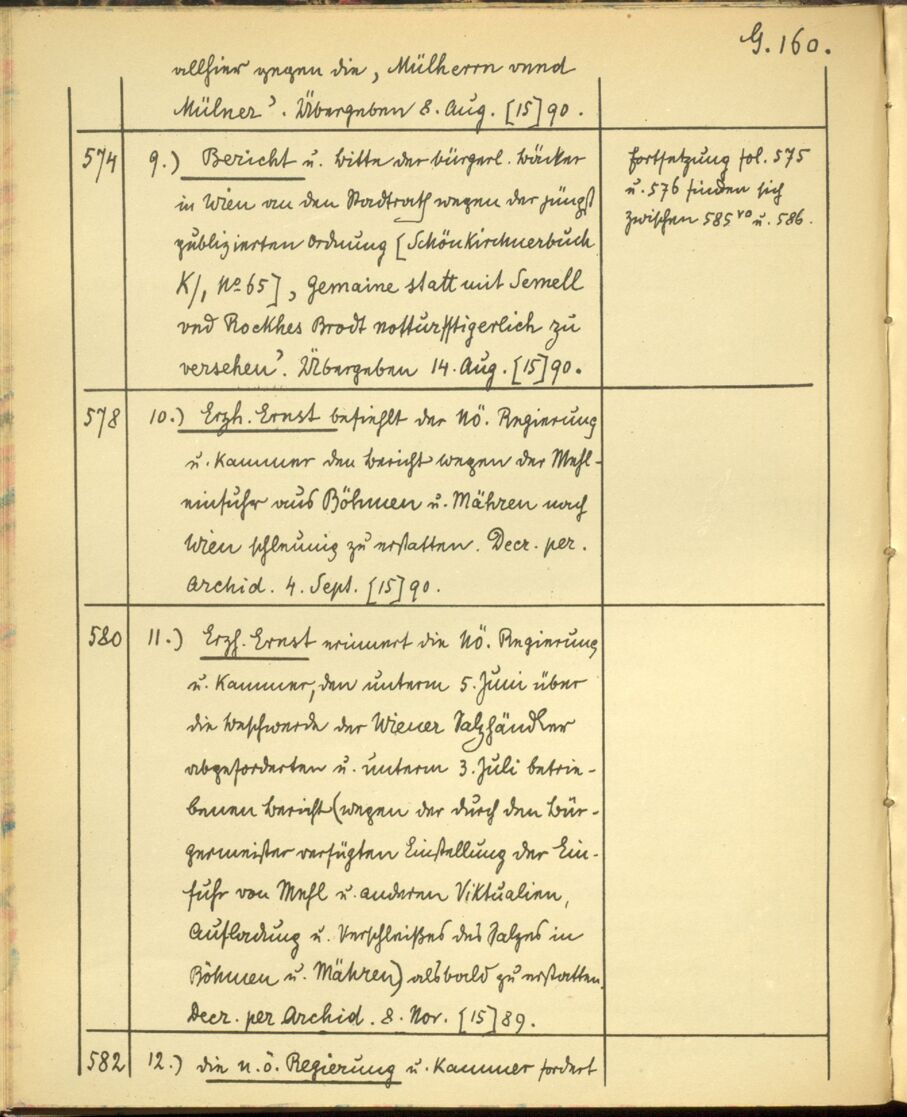 G. 160.
allhier gegen die ‚Mülherrn vnnd
Mülner’. Übergeben 8. Aug. [15]90.
574 9.) Bericht u. Bitte der bürgerl. Bäcker
in Wien an den Stadtrath wegen der jüngst
publizierten Ordnung [Schönkirchnerbuch
K/, No 65], ‚Gemaine statt mit Semell
vnd Rockhes Brodt notturfftigerlich zu
versehen’. Übergeben 14. Aug. [15]90.
Fortsetzung fol. 575
u. 576 finden sich
zwischen 585 vo u. 586.
578 10.) Erzh. Ernst befiehlt der Nö. Regierung
u. Kammer den Bericht wegen der Mehl-
einfuhr aus Böhmen u. Mähren nach
Wien schleunig zu erstatten. Decr. per.
Archid. 4. Sept. [15]90.
580 11.) Erzh. Ernst erinnert die Nö. Regierung
u. Kammer, den unterm 5. Juni über
die Beschwerde der Wiener Salzhändler
abgeforderten u. unterm 3. Juli betrie-
benen Bericht (wegen der durch den Bür-
germeister verfügten Einstellung der Ein-
fuhr von Mehl u. anderen Viktualien,
Aufladung u. Verschleißes des Salzes in
Böhmen u. Mähren) alsbald zu erstatten.
Decr. per Archid. 8. Nov. [15]89.
582 12.) die n.ö. Regierung u. Kammer fordert